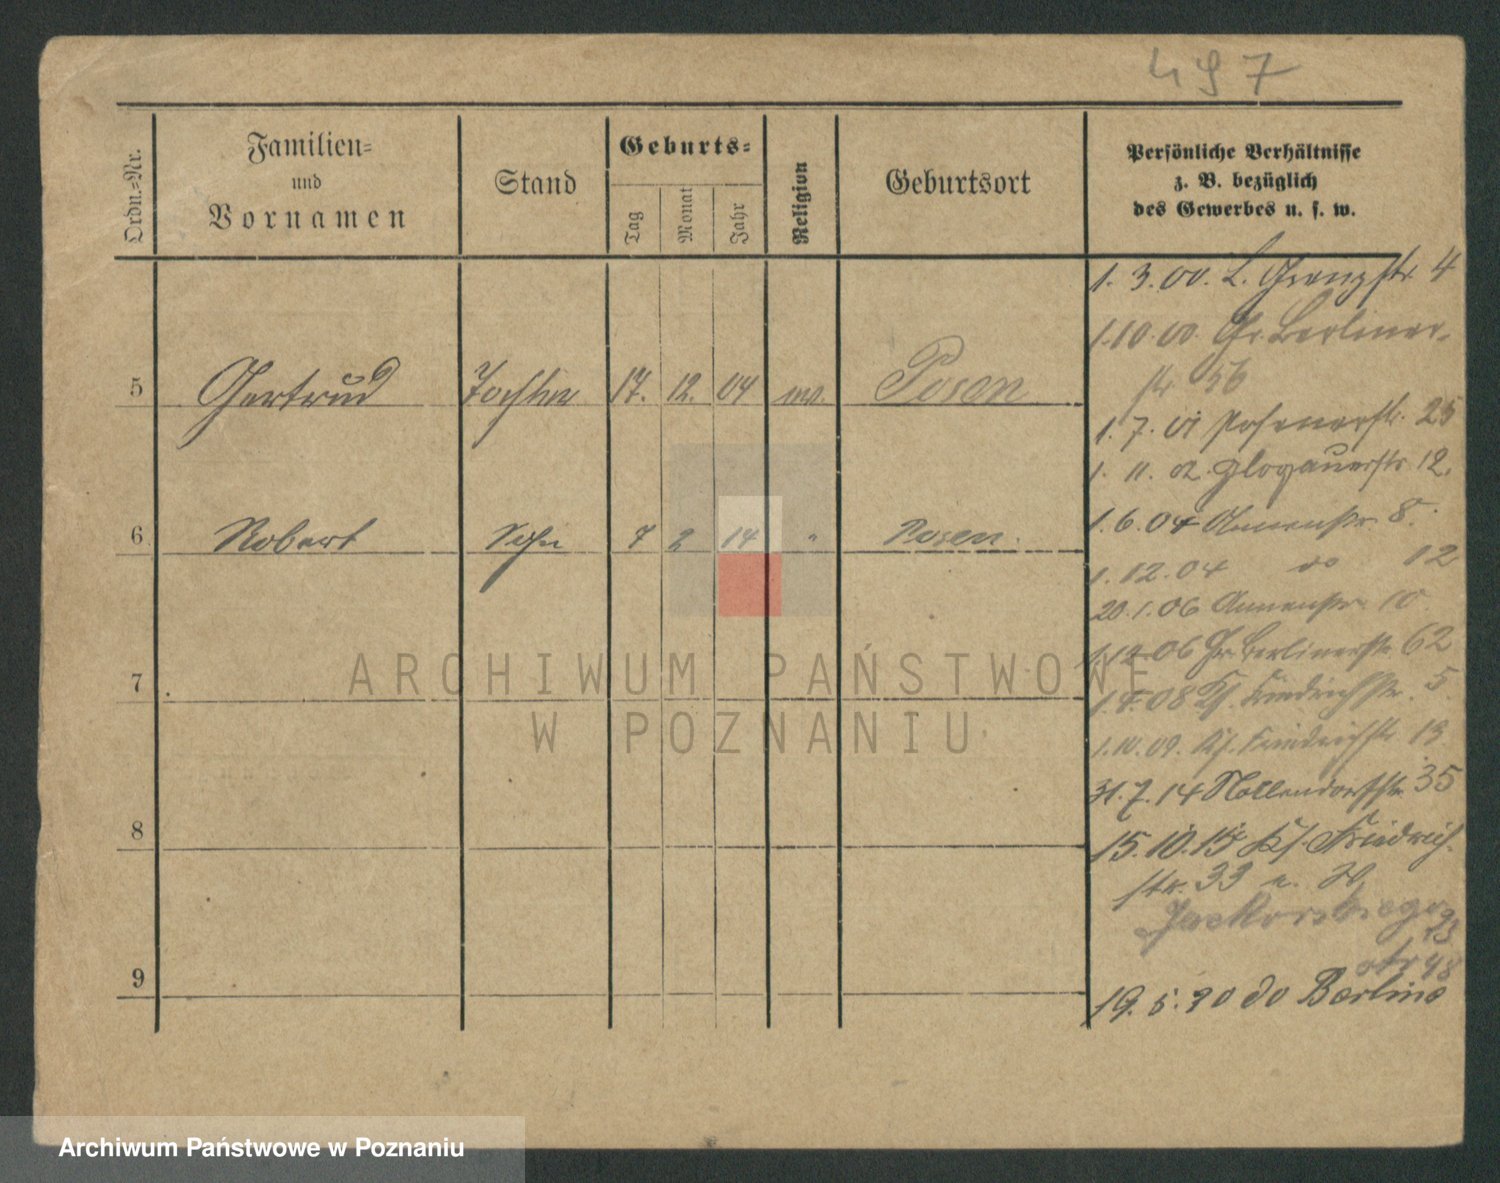 497
Ordn.-Nr.
Familien-
und
Vornamen
Stand
Geburts-
Tag
Monat
Jahr
Religion
Geburtsort
Persönliche Verhältnisse
z. B. bezüglich
des Gewerbes u. s. w.
1. 3. 00. L. Grenzstr. 4
1.10.00. Gr. Berliner-
str. 56
5 Gertrud Tochter 17. 12. 04 Posen
1. 7. 01 Posenerstr. 25
1. 11. 02. Glogauerstr. 12.
6 Robert Sohn 7 2 14 " Posen.
1. 6. 04 Annenstr. 8.
1. 12. 04 do 12
20. 1. 06 Annenstr. 10
1.12.06 Gr. Berlinerstr. 62
7
1.4.08 Ks. Friedrichstr. 5.
1.10.09. Ks. Friedrichstr. 13
31. 7. 14 Nollendorfstr. 35
8
15. 10. 15 Ks. Friedrich-
str. 33
Jackowskiego
otr 48
9
19. 5. 20 do Berlina
ARCHIWUM PAŃSTWOWE
W POZNANIU
Archiwum Państwowe w Poznaniu